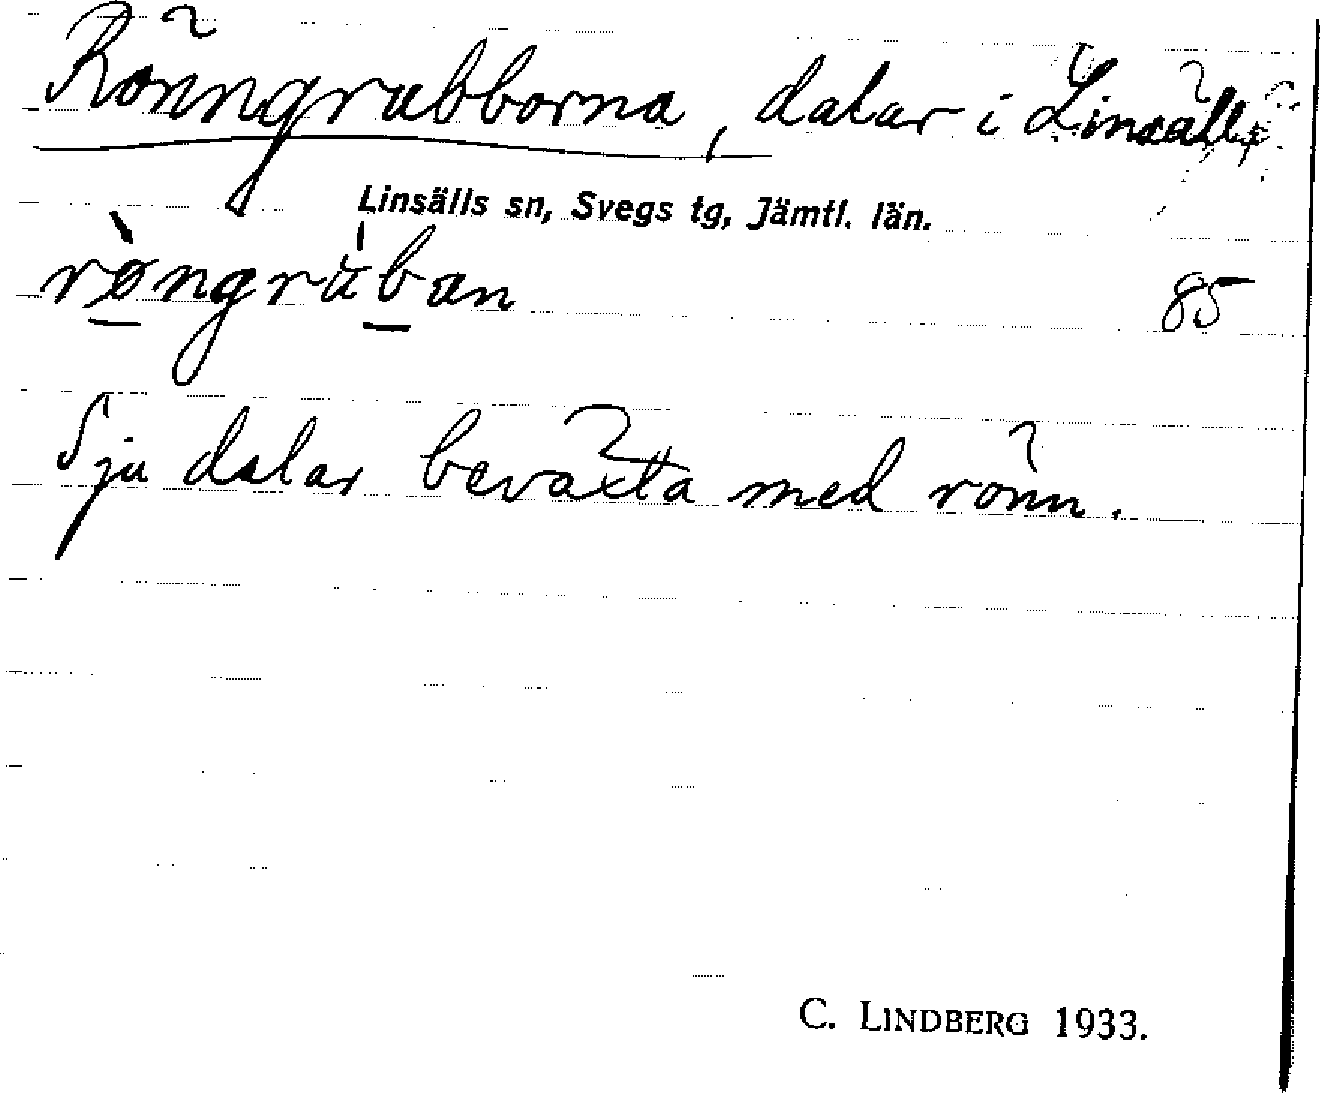 Rönngrubborna, dalar i Linsäll
Linsälls sn, Svegs tg, Jämtl. län.
röngruban
85
Sju dalar beväxta med rönn.
C. LINDBERG 1933.